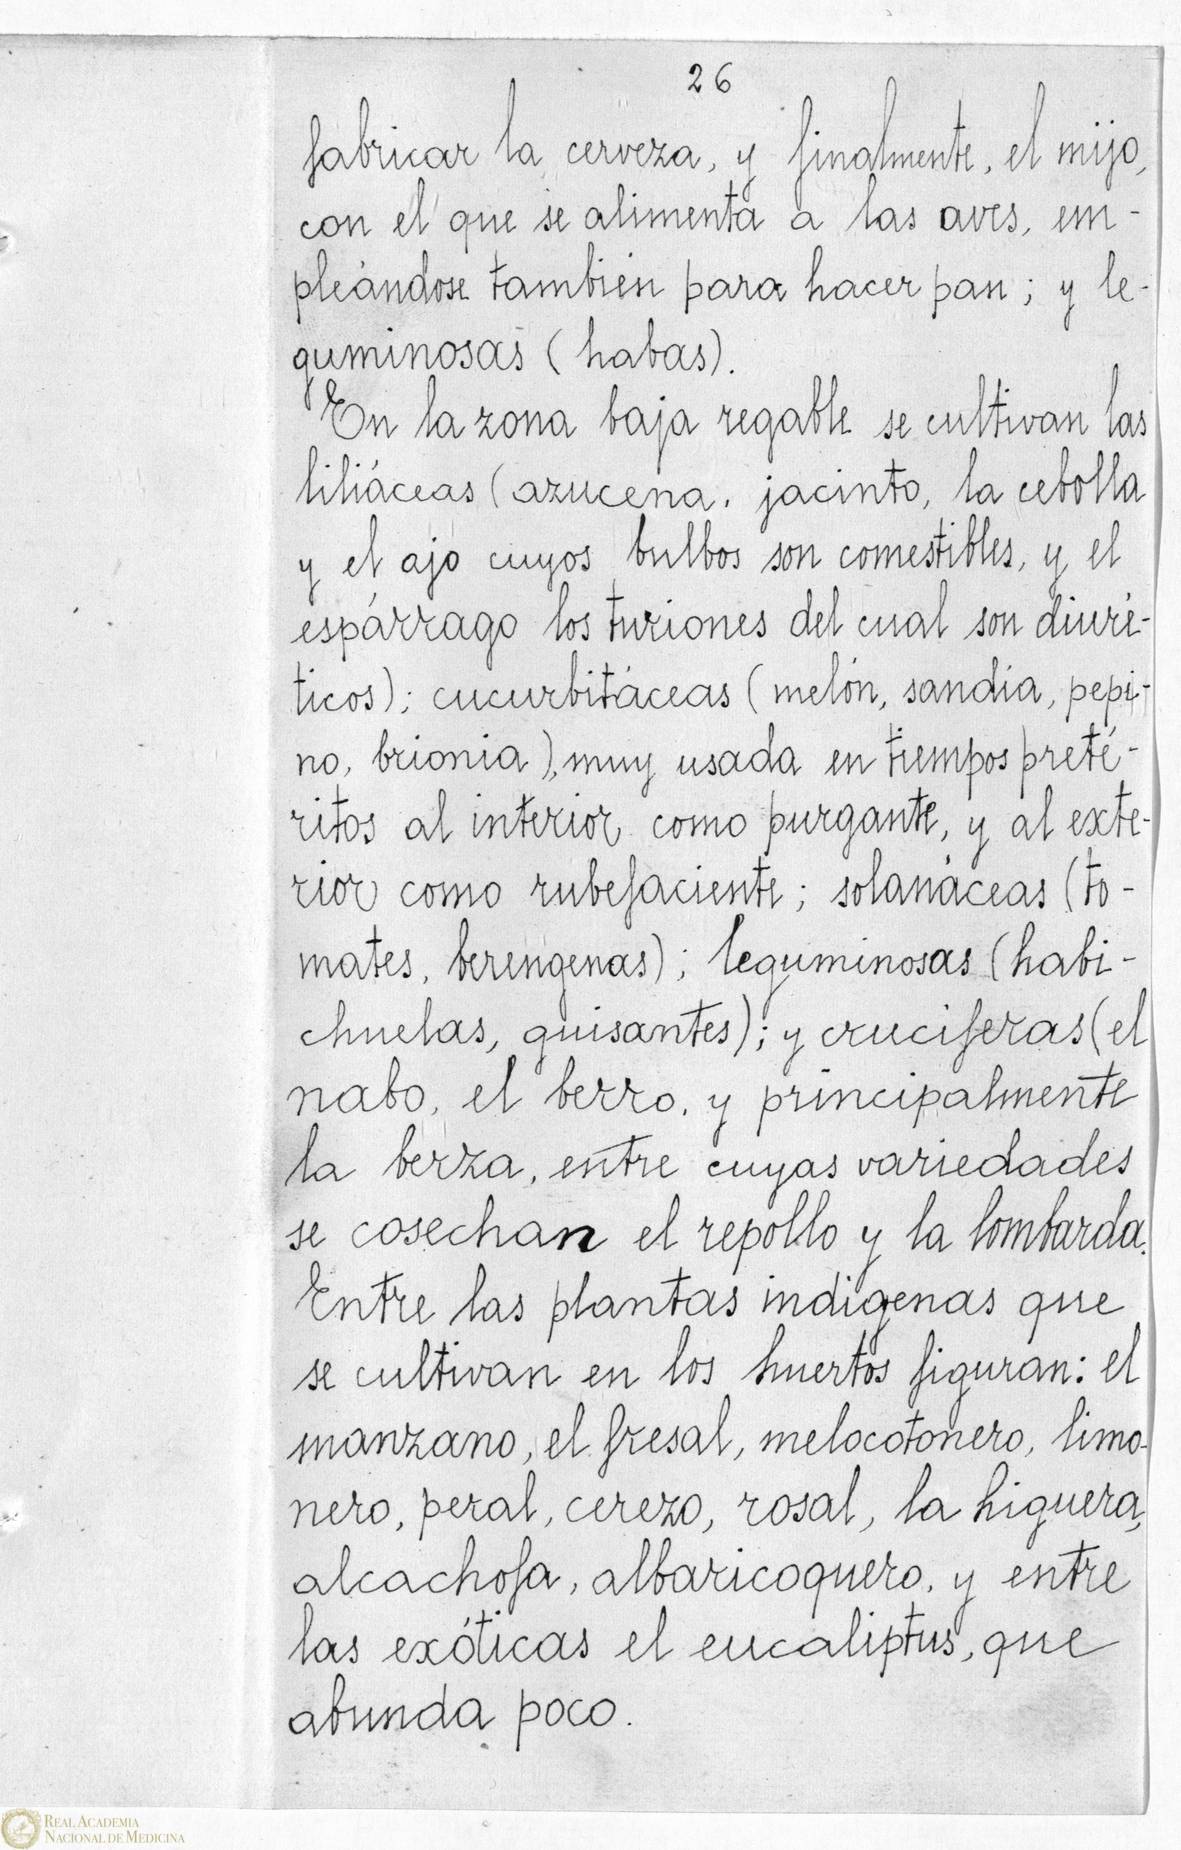 26
fabricar la cerveza, y finalmente, el mijo,
con el que se alimenta a las aves, em-
pleándose también para hacer pan; y le-
guminosas (habas).
En la zona baja regable se cultivan las
liliáceas (azucena, jacinto, la cebolla
y el ajo cuyos bulbos son comestibles, y el
espárrago los turiones del cual son diuré-
ticos); cucurbitáceas (melón, sandía, pepi-
no, brionia), muy usada en tiempos preté-
ritos al interior como purgante, y al exte-
rior como rubefaciente; solanáceas (to-
mates, berengenas); leguminosas (habi-
chuelas, guisantes); y cruciferas (el
nabo, el berro, y principalmente
la berza, entre cuyas variedades
se cosechan el repollo y la lombarda.
Entre las plantas indígenas que
se cultivan en los huertos figuran: el
manzano, el fresal, melocotonero, limo-
nero, peral, cerezo, rosal, la higuera,
alcachofa, albaricoquero, y entre
las exóticas el eucaliptus, que
abunda poco.
REAL ACADEMIA
NACIONAL DE MEDICINA